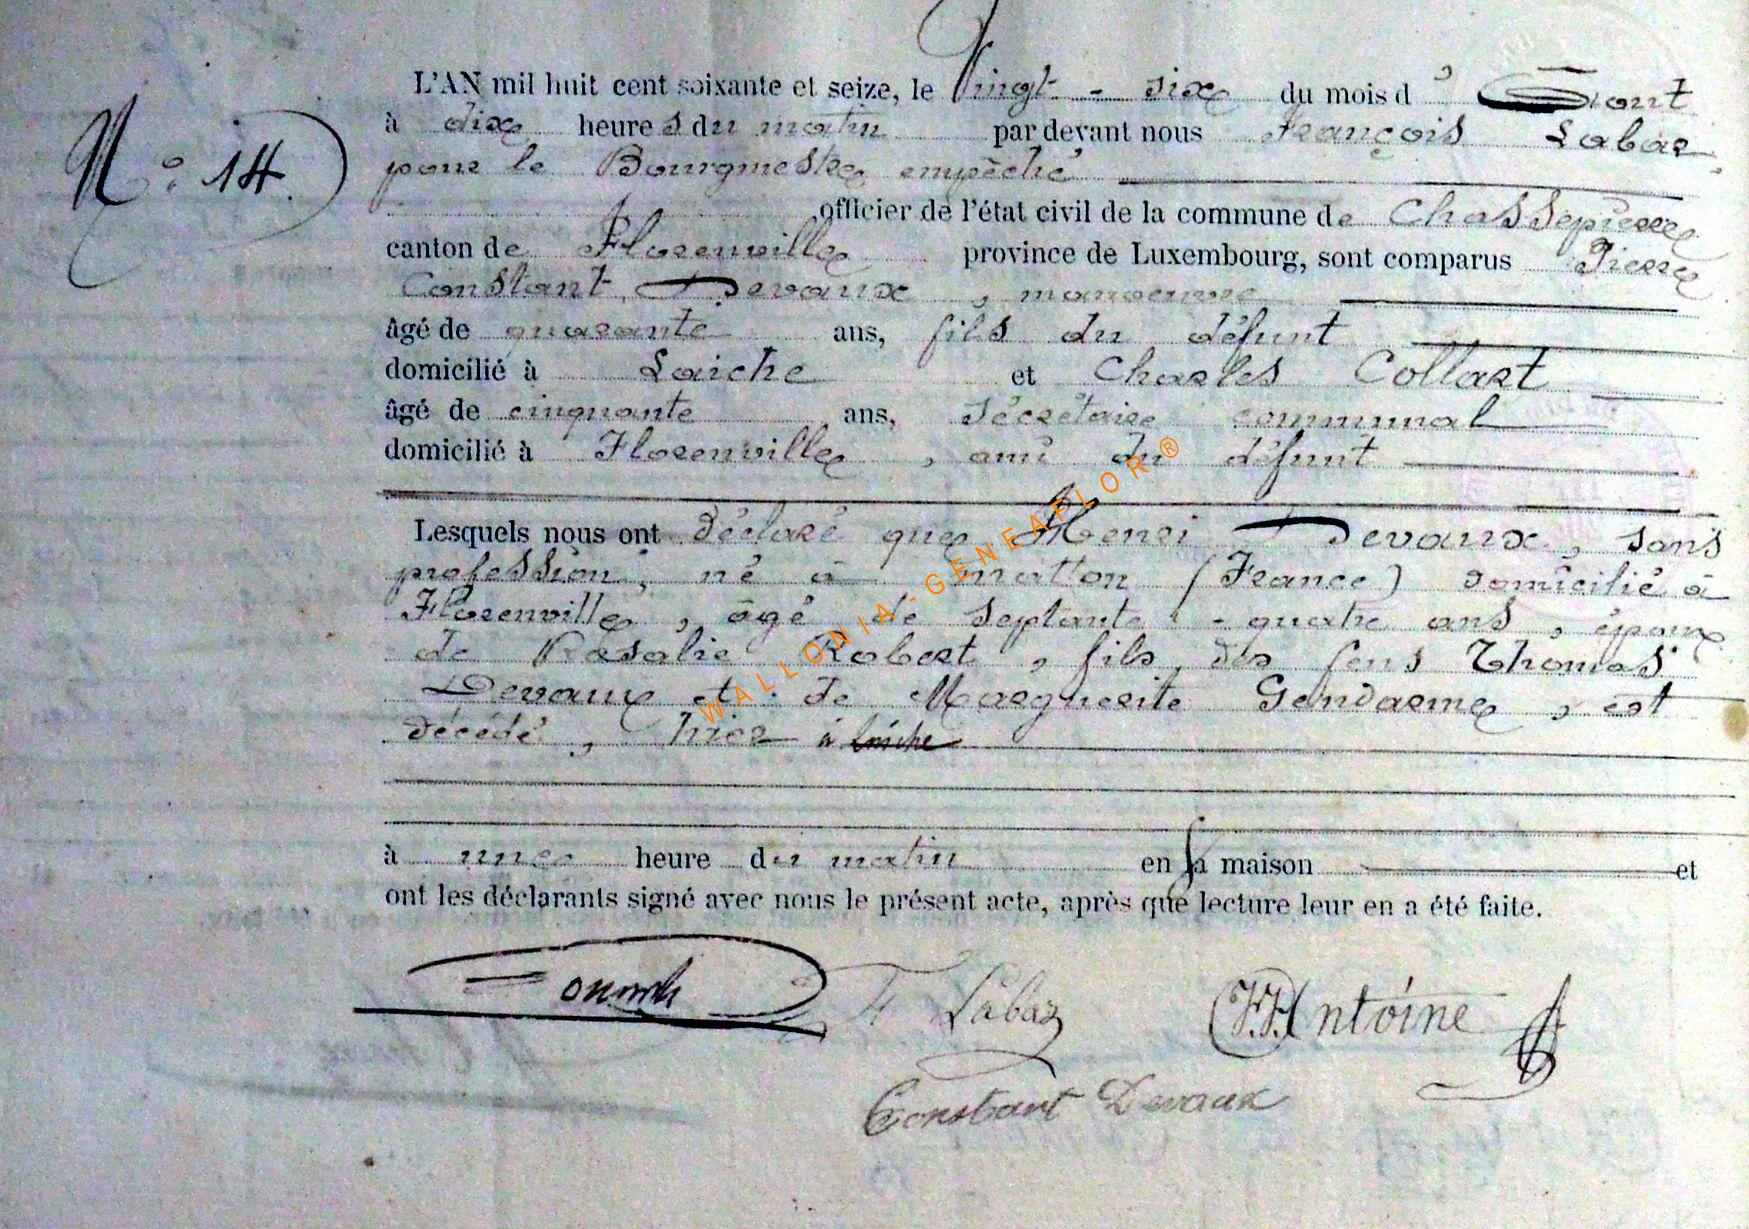 L'AN mil huit cent soixante et seize, le Vingt - six du mois d' Aout
N° 14.
à dix heures du matin par devant nous François Labar
pour le Bourgmestre empêché
officier de l'état civil de la commune de Chassepierre
canton de Florenville province de Luxembourg, sont comparus Pierre
Constant Devaux, manoeuvre
âgé de quarante ans, fils du défunt
domicilié à Laiche et Charles Collart
âgé de cinquante ans, secrétaire communal
domicilié à Florenville, ami du défunt
Lesquels nous ont déclaré que Henri Devaux, sans
profession, né à matton (France) domicilié à
Florenville, âgé de septante - quatre ans, époux
de Rosalie Robert, fils des feus Thomas
Devaux et de Marguerite Gendarme, est
décédé, hier à laiche
à une heure du matin en sa maison et
ont les déclarants signé avec nous le présent acte, après que lecture leur en a été faite.
F Labar
Antoine
Constant Devaux
WALLONIA-GENEAFLOR®